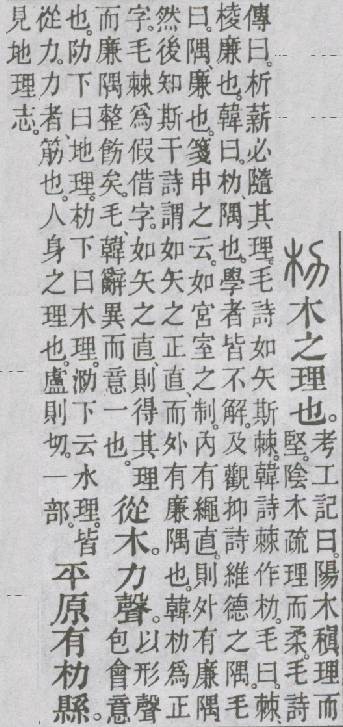 朸木之理也。
考工記曰。陽木稹理而
堅。陰木疏理而柔。毛詩
傳曰。析薪必隨其理。毛詩如矢斯棘。韓詩棘作朸。毛曰。棘、
棱廉也。韓曰。朸、隅也。學者皆不解。及觀抑詩維德之隅。毛
曰。隅、廉也。箋申之云。如宮室之制。內有繩直。則外有廉隅
然後知斯干詩謂如矢之正直、而外有廉隅也。韓朸爲正
字。毛棘爲假借字。如矢之直、則得其理
而廉隅整飭矣。毛、韓辭異而意一也。
從木。力聲。
以形聲
包會意
也。阞下曰地理。朸下曰木理。泐下云水理。皆
從力。力者、筋也。人身之理也。盧則切。一部。
平原有朸縣。
見地理志。